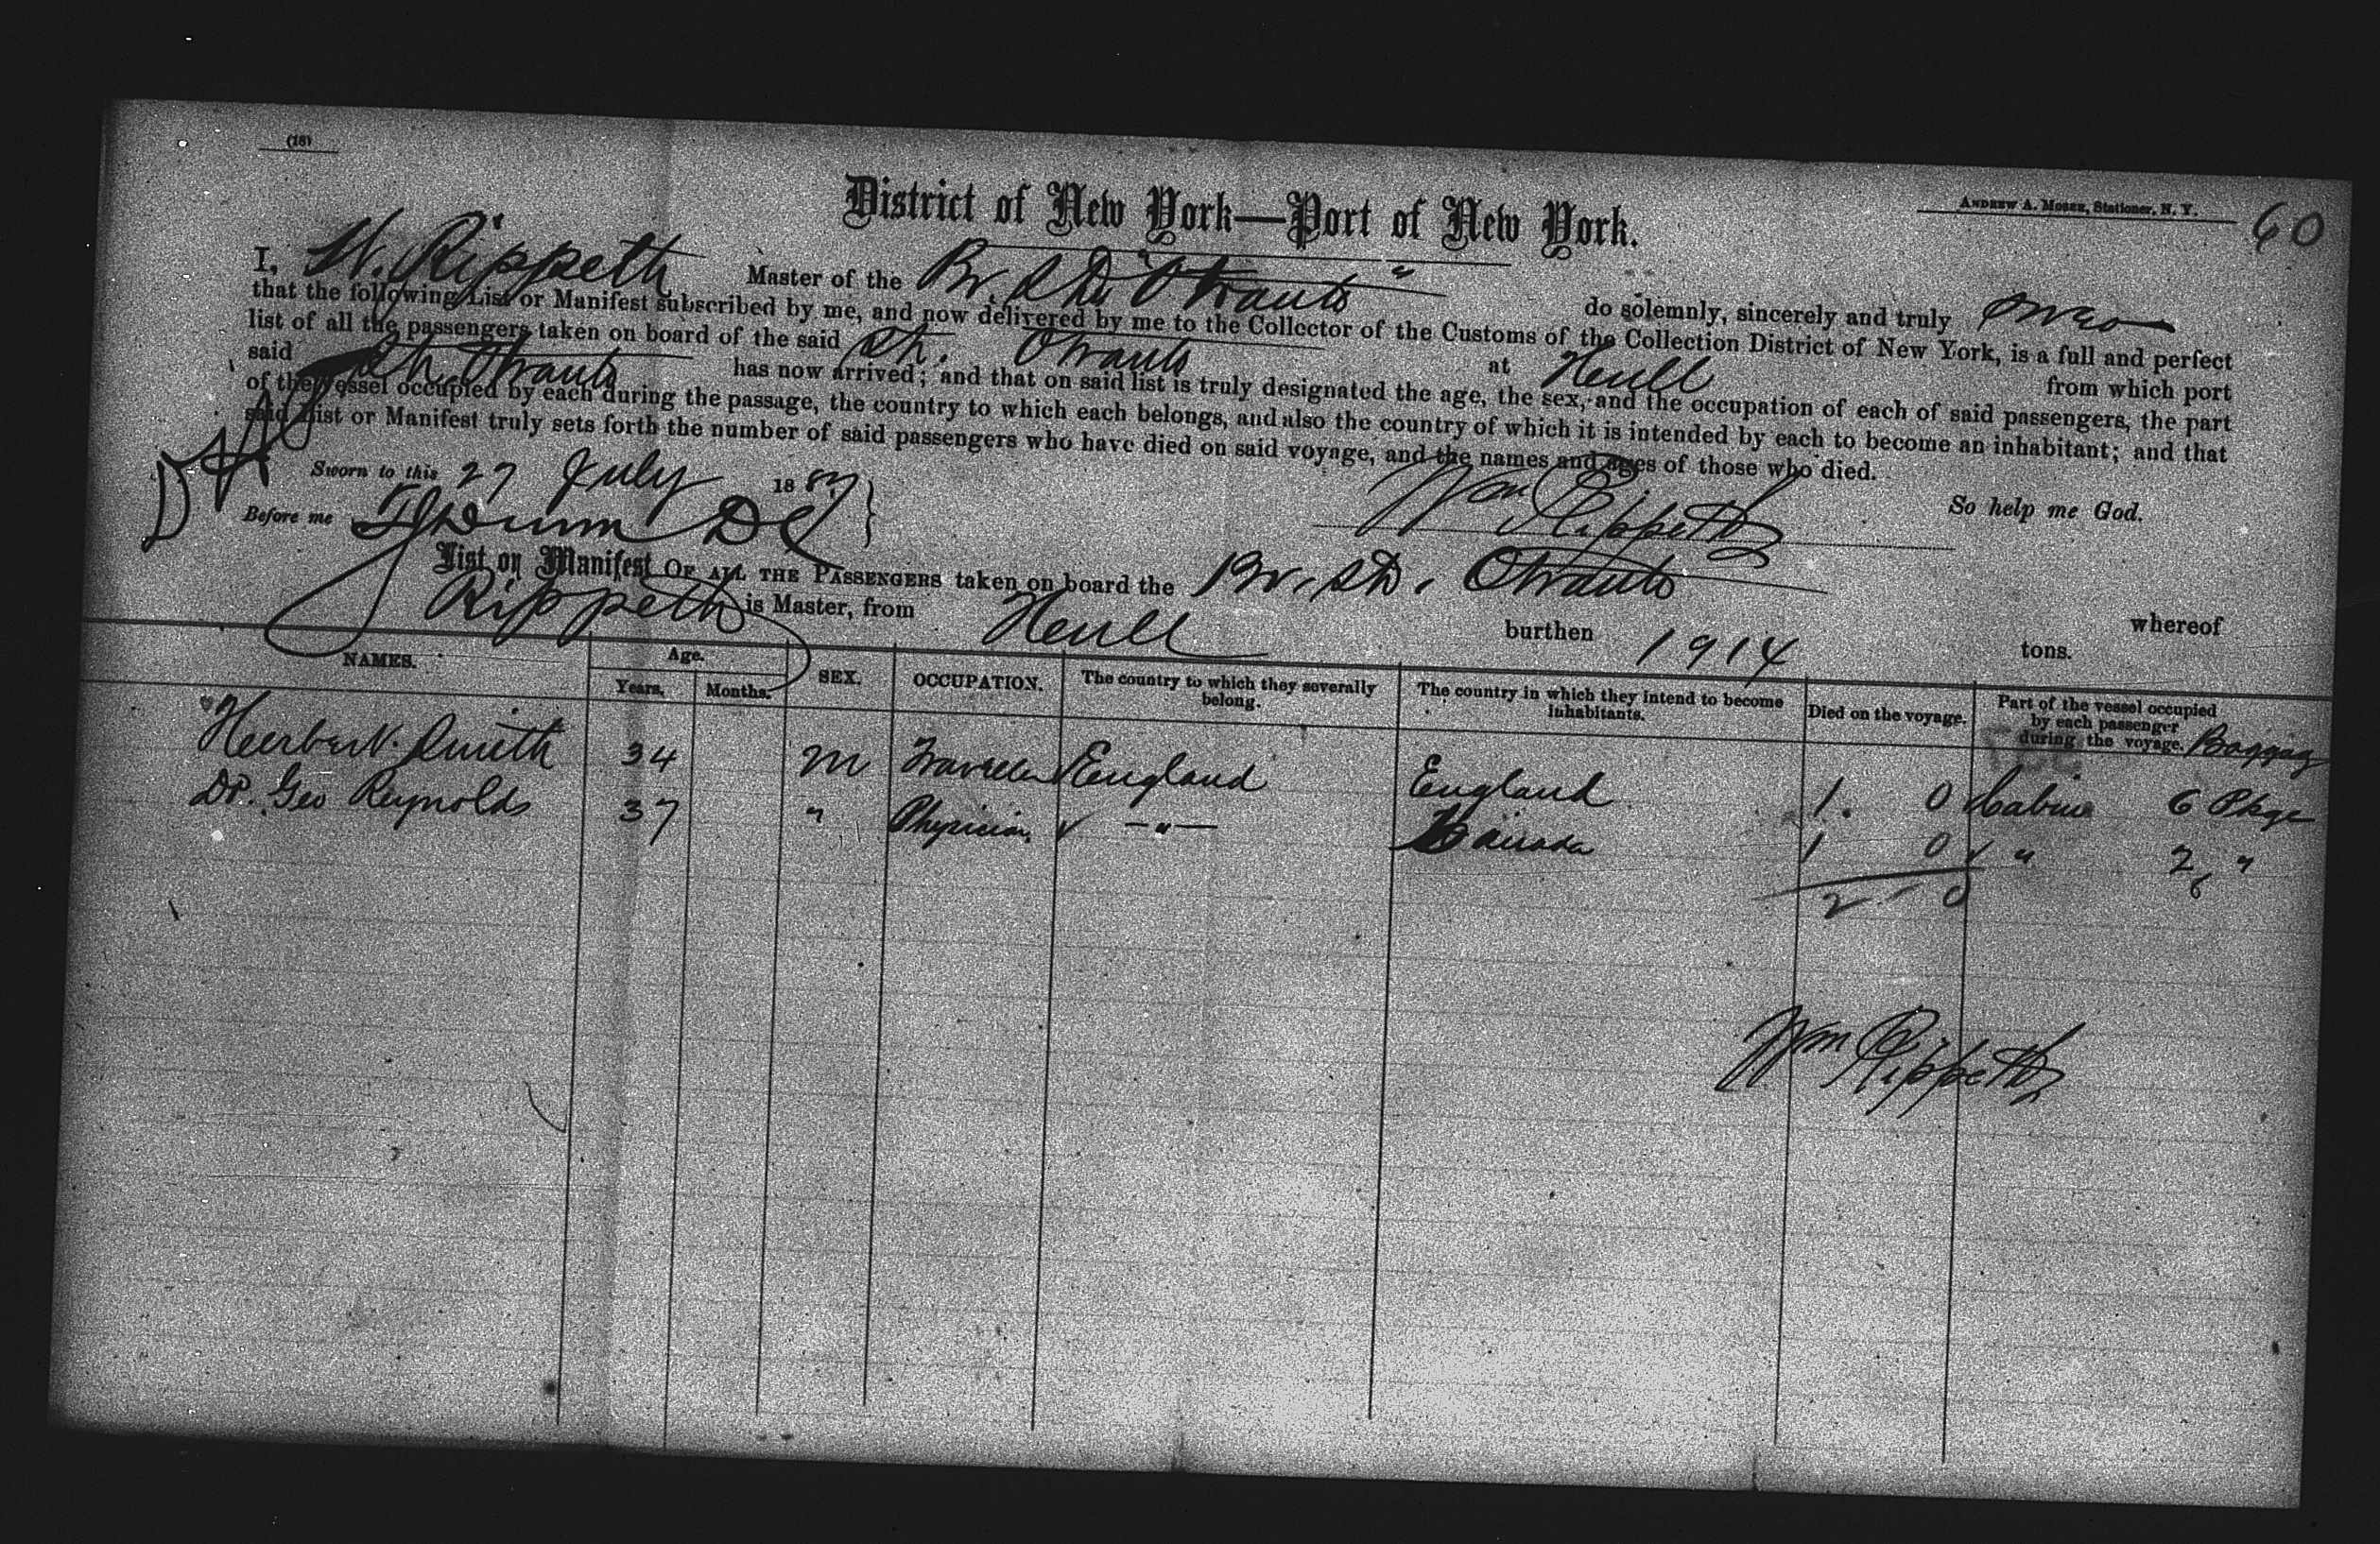 (18)
ANDREW A. MOSER, Stationer, N. Y. 60
District of New York—Port of New York.
I, W. Rippeth Master of the Br. Str. "Otranto" do solemnly, sincerely and truly swear
that the following List or Manifest subscribed by me, and now delivered by me to the Collector of the Customs of the Collection District of New York, is a full and perfect
list of all the passengers taken on board of the said Str. Otranto at Hull from which port
said Str. Otranto has now arrived; and that on said list is truly designated the age, the sex, and the occupation of each of said passengers, the part
of the vessel occupied by each during the passage, the country to which each belongs, and also the country of which it is intended by each to become an inhabitant; and that
said List or Manifest truly sets forth the number of said passengers who have died on said voyage, and the names and ages of those who died.
So help me God.
Sworn to this 27 July 1887
Wm Rippeth
Before me
List or Manifest OF ALL THE PASSENGERS taken on board the Br. Str. Otranto whereof
Rippeth is Master, from Hull burthen 1914 tons.
NAMES. Age. Years. Months. SEX. OCCUPATION. The country to which they severally belong. The country in which they intend to become inhabitants. Died on the voyage. Part of the vessel occupied by each passenger during the voyage. Baggag
Herbert Smith 34 M Traveller England England 1. 0 Cabin 6 Pkge
Dr. Geo Reynolds 37 " Physician — " — Canada 1 0 " 2 "
2 0 6
Wm Rippeth